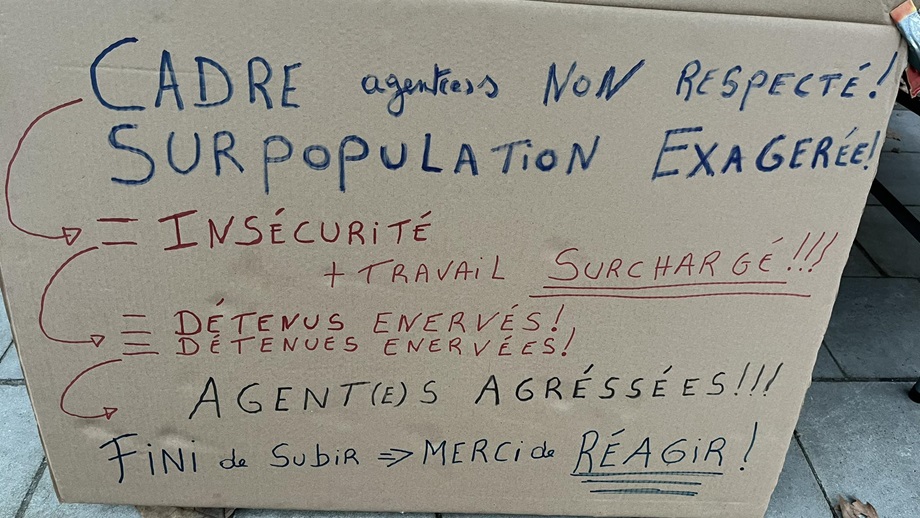 CADRE agentess NON RESPECTÉ!
SURPOPULATION EXAGERÉE!
= INSÉCURITÉ
+ TRAVAIL SURCHARGÉ!!!
= DÉTENUS ENERVÉS!
= DÉTENUES ENERVÉES!
AGENT(E)S AGRÉSSÉES!!!
FINI de SUBIR => MERCI de RÉAGIR!